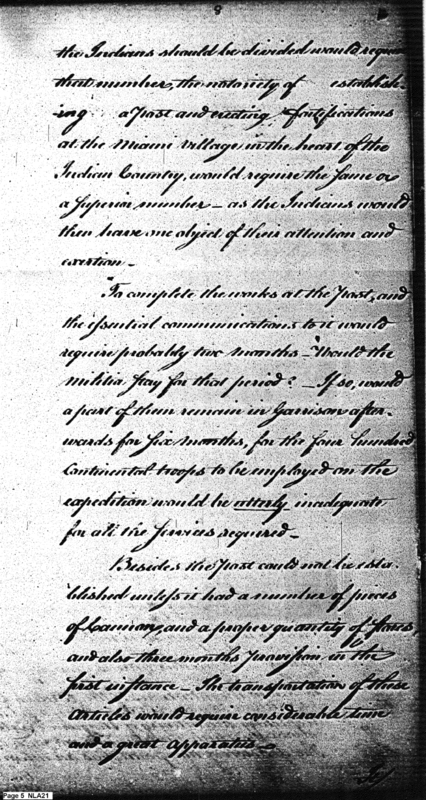 8
the Indians should be divided would require
that number, the notoriety of establish-
ing a Post and erecting fortifications
at the Miami Village in the heart of the
Indian Country, would require the same or
a superior number — as the Indians would
then have one object of their attention and
exertion —
To complete the works at the Post, and
the essential communications to it would
require probably two months — Would the
militia stay for that period? — If so, would
a part of them remain in Garrison after-
wards for six months, for the four hundred
Continental troops to be employed on the
expedition would be utterly inadequate
for all the services required —
Besides the Post could not be esta-
blished unless it had a number of pieces
of Cannon, and a proper quantity of stores,
and also three months provision in the
first instance — The transportation of these
Articles would require considerable time
and a great apparatus —
Page 5 NLA21